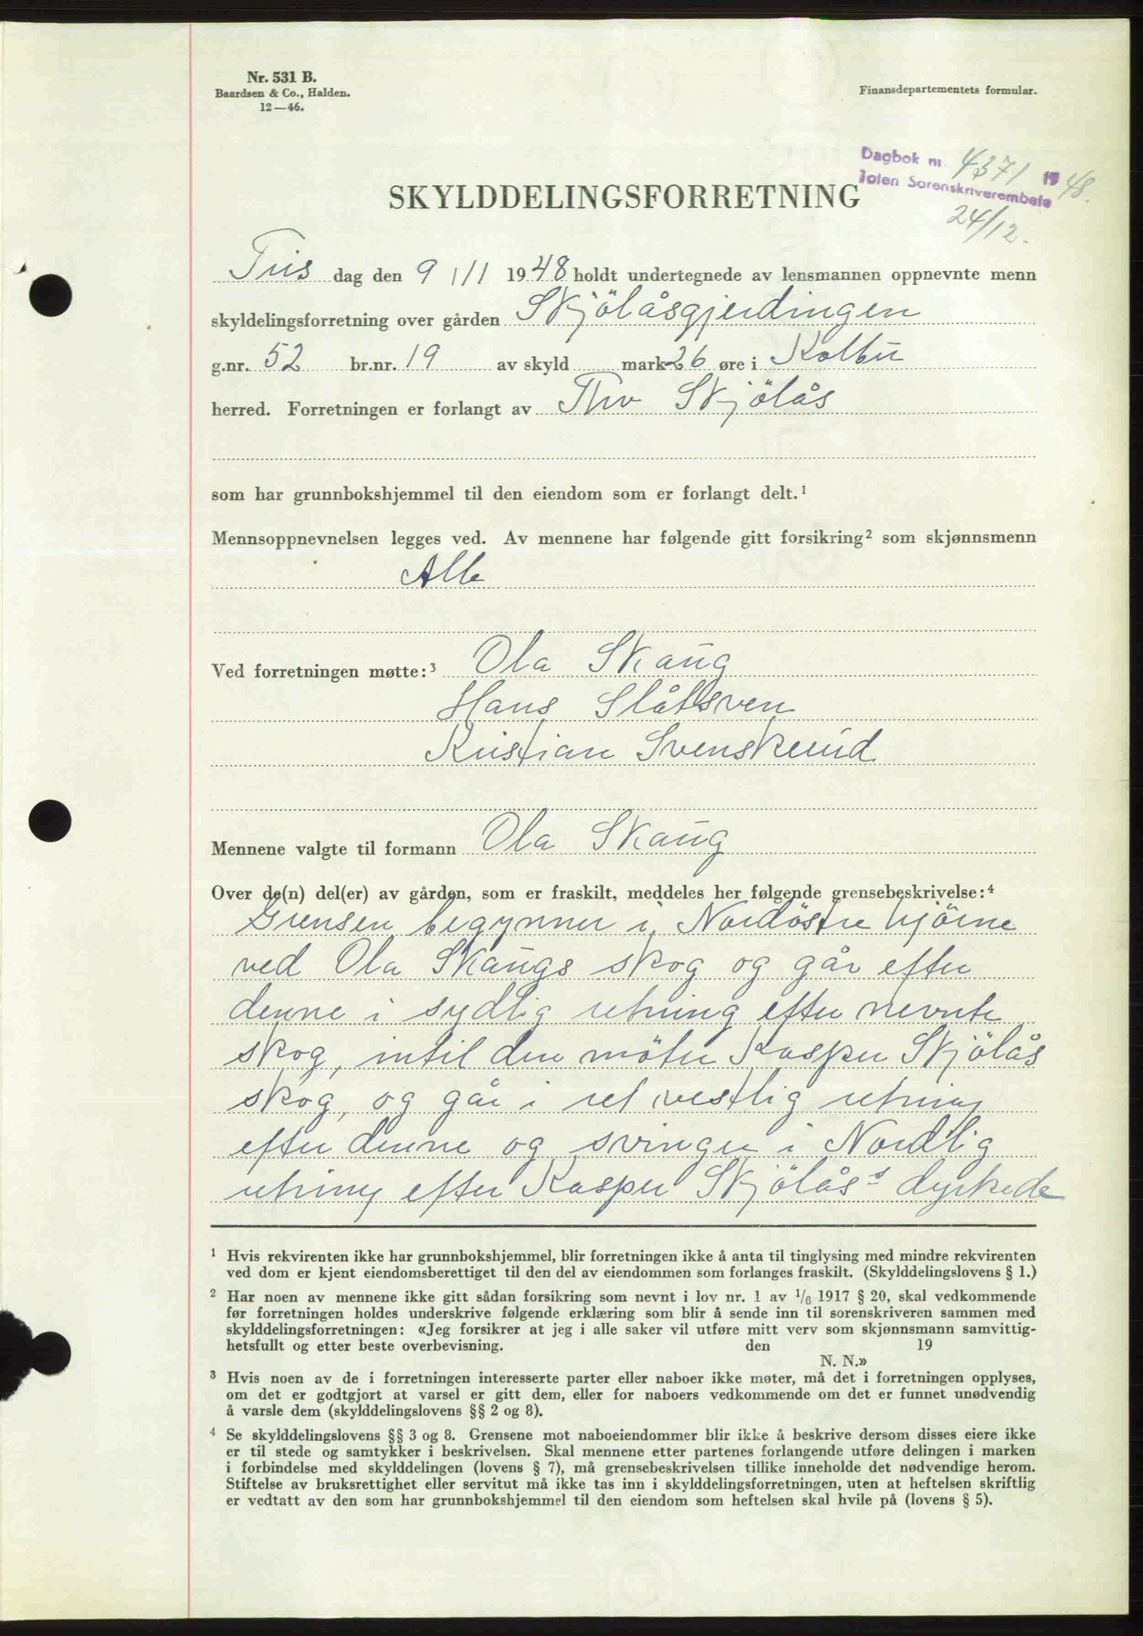 Nr. 531 B.
Baardsen & Co., Halden.
12—46.
Finansdepartementets formular.
Dagbok nr. 4371 1948.
Toten Sorenskriverembete
24/12.
SKYLDDELINGSFORRETNING
Tirs dag den 9/11 1948 holdt undertegnede av lensmannen oppnevnte menn
skyldelingsforretning over gården Skjölåsgjerdingen
g.nr. 52 br.nr. 19 av skyld mark 26 øre i Kolbu
herred. Forretningen er forlangt av Thv Skjölås
som har grunnbokshjemmel til den eiendom som er forlangt delt.¹
Mennsoppnevnelsen legges ved. Av mennene har følgende gitt forsikring² som skjønnsmenn
Alle
Ved forretningen møtte:³ Ola Skaug
Hans Slåtsven
Kristian Svenskerud
Mennene valgte til formann Ola Skaug
Over de(n) del(er) av gården, som er fraskilt, meddeles her følgende grensebeskrivelse:⁴
Grensen begynner i Nordöstre hjörne
ved Ola Skaugs skog og går efter
denne i sydlig retning efter nevnte
skog, intil den möter Kasper Skjölås
skog, og går i ret vestlig retning
efter denne og svinger i Nordlig
retning efter Kasper Skjölås's dyrkede
¹ Hvis rekvirenten ikke har grunnbokshjemmel, blir forretningen ikke å anta til tinglysing med mindre rekvirenten
ved dom er kjent eiendomsberettiget til den del av eiendommen som forlanges fraskilt. (Skylddelingslovens § 1.)
² Har noen av mennene ikke gitt sådan forsikring som nevnt i lov nr. 1 av 1/6 1917 § 20, skal vedkommende
før forretningen holdes underskrive følgende erklæring som blir å sende inn til sorenskriveren sammen med
skylddelingsforretningen: «Jeg forsikrer at jeg i alle saker vil utføre mitt verv som skjønnsmann samvittig-
hetsfullt og etter beste overbevisning. den 19
N. N.»
³ Hvis noen av de i forretningen interesserte parter eller naboer ikke møter, må det i forretningen opplyses,
om det er godtgjort at varsel er gitt dem, eller for naboers vedkommende om det er funnet unødvendig
å varsle dem (skylddelingslovens §§ 2 og 8).
⁴ Se skylddelingslovens §§ 3 og 8. Grensene mot naboeiendommer blir ikke å beskrive dersom disses eiere ikke
er til stede og samtykker i beskrivelsen. Skal mennene etter partenes forlangende utføre delingen i marken
i forbindelse med skylddelingen (lovens § 7), må grensebeskrivelsen tillike inneholde det nødvendige herom.
Stiftelse av bruksrettighet eller servitut må ikke tas inn i skylddelingsforretningen, uten at heftelsen skriftlig
er vedtatt av den som har grunnbokshjemmel til den eiendom som heftelsen skal hvile på (lovens § 5).